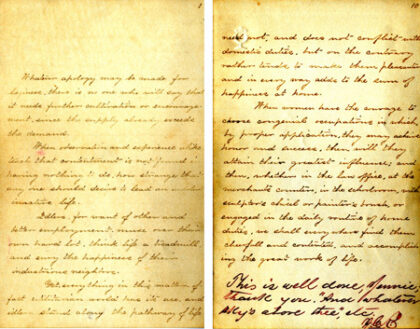 1
Whatever apology may be made for
laziness, there is no one who will say that
it needs further cultivation or encourage-
ment, since the supply already exceeds
the demand.
When observation and experience unite to
teach that contentment is not found in
having nothing to do, how strange that
any one should desire to lead an
inactive life.
Idlers, for want of other and
better employment, muse over their
own hard lot, think life a treadmill,
and envy the happiness of their
industrious neighbors.
Yet everything in this matter-of-
fact utilitarian world has its use, and
idlers stand along the pathway of life
10
need not, and does not conflict with
domestic duties, but on the contrary
rather tends to make them pleasant
and in every way adds to the sum of
happiness at home.
When women have the courage to
choose congenial occupations in which,
by proper application, they may achieve
honor and success, then will they
attain their greatest influence; and
then, whether in the law office, at the
merchants counter, in the schoolroom, with
sculptors chisel or painters brush, or
engaged in the daily routine of home
duties, we shall everywhere find them
cheerful and contented, and accomplish-
ing the great work of life.
This is well done, Jennie,
thank you. "And whatever
sky's above thee," etc.